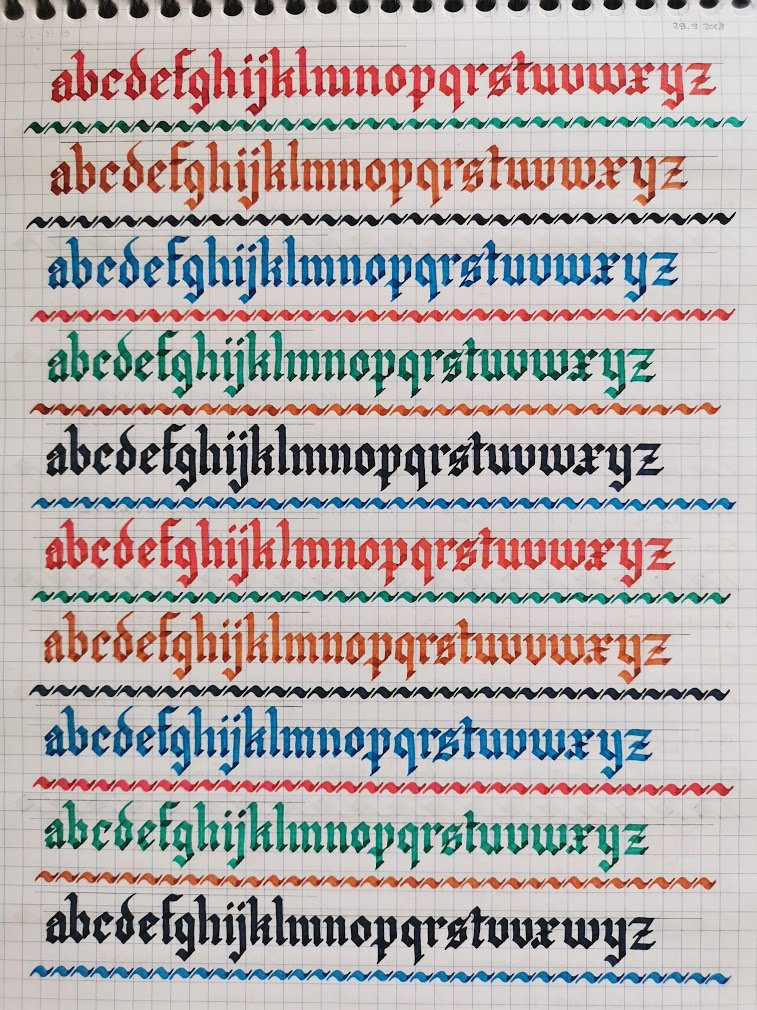 29.9 2018
abcdefghijklmnopqrstuvwxyz
abcdefghijklmnopqrstuvwxyz
abcdefghijklmnopqrstuvwxyz
abcdefghijklmnopqrstuvwxyz
abcdefghijklmnopqrstuvwxyz
abcdefghijklmnopqrstuvwxyz
abcdefghijklmnopqrstuvwxyz
abcdefghijklmnopqrstuvwxyz
abcdefghijklmnopqrstuvwxyz
abcdefghijklmnopqrstuvxwyz